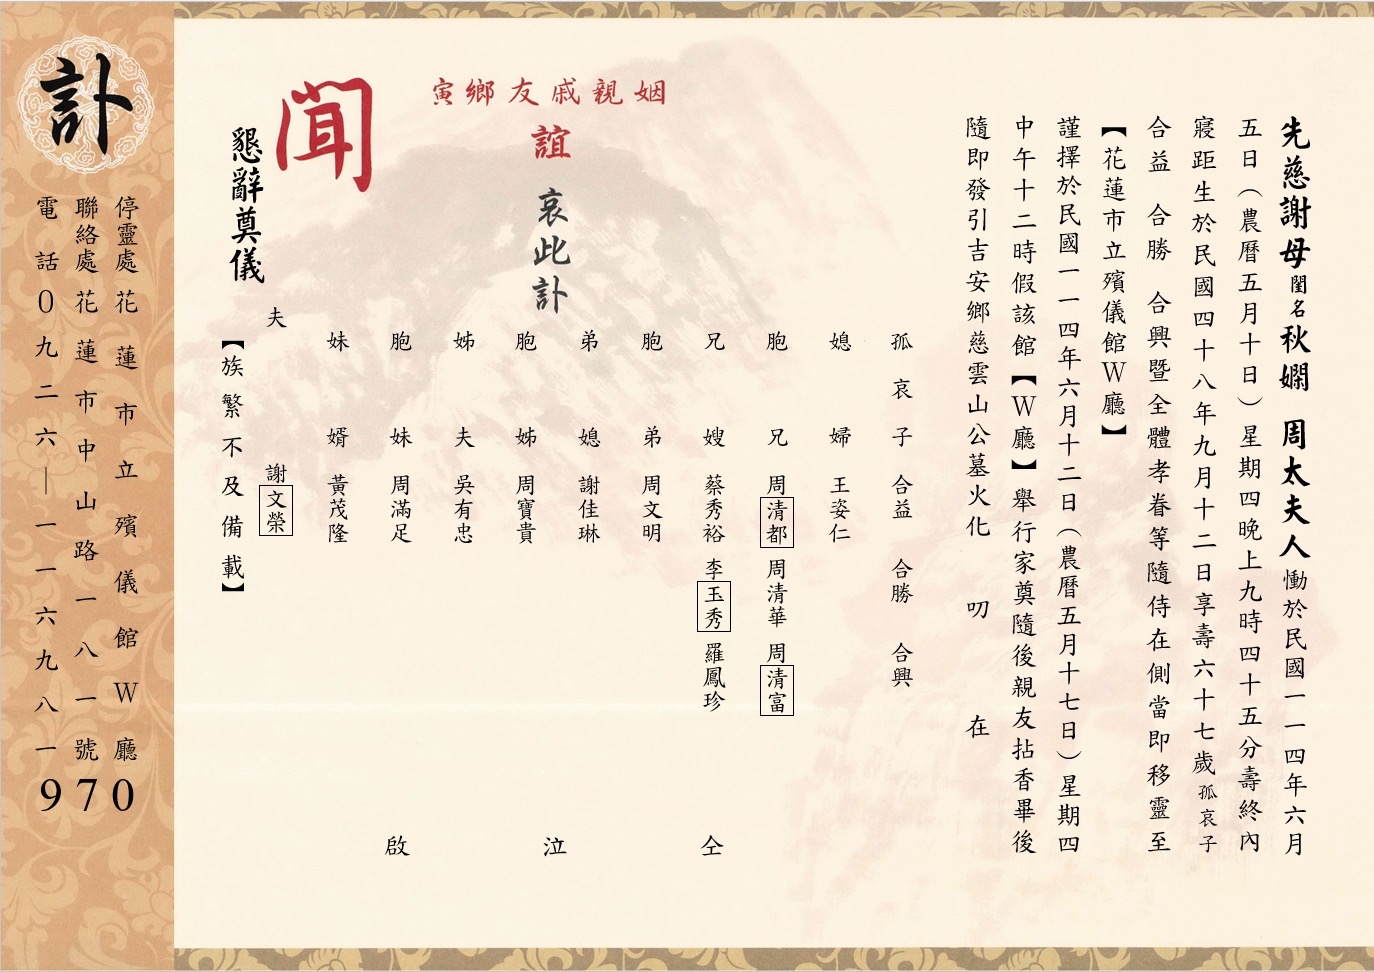 先慈謝母閨名秋嫻 周太夫人慟於民國一一四年六月
五日（農曆五月十日）星期四晚上九時四十五分壽終內
寢距生於民國四十八年九月十二日享壽六十七歲孤哀子
合益 合勝 合興暨全體孝眷等隨侍在側當即移靈至
【花蓮市立殯儀館W廳】
謹擇於民國一一四年六月十二日（農曆五月十七日）星期四
中午十二時假該館【W廳】舉行家奠隨後親友拈香畢後
隨即發引吉安鄉慈雲山公墓火化 叨 在
寅鄉友戚親姻
誼 哀此訃
聞
懇辭奠儀
孤哀子 合益 合勝 合興
媳婦 王姿仁
胞兄 周清都 周清華 周清富
兄嫂 蔡秀裕 李玉秀 羅鳳珍
胞弟 周文明
弟媳 謝佳琳
胞姊 周寶貴
姊夫 吳有忠
胞妹 周滿足
妹婿 黃茂隆
夫 謝文榮
【族繁不及備載】
仝 泣 啟
訃
停靈處 花蓮市立殯儀館W廳
聯絡處 花蓮市中山路一八一號
電話 0九二六－一一六九八一
970